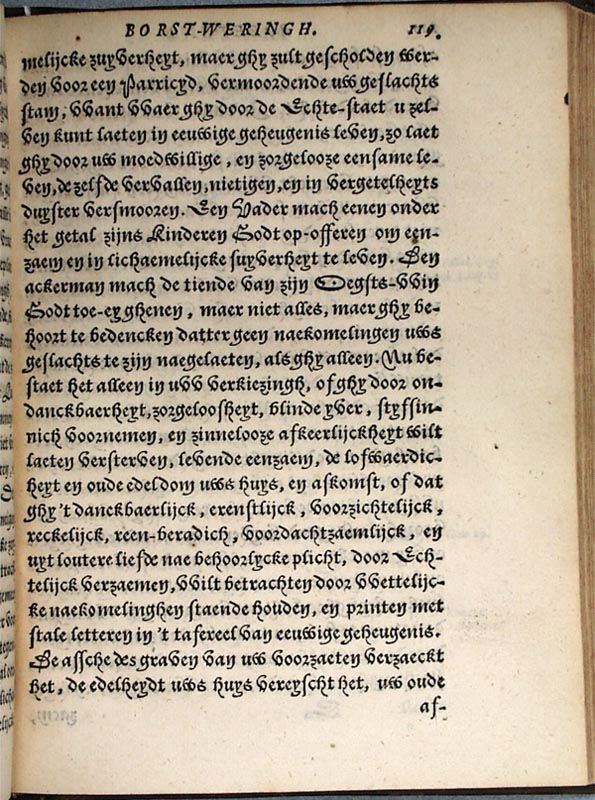 BORST-WERINGH. 119.
melijcke zuyverheyt, maer ghy zult gescholden wer-
den voor een Parricyd, vermoordende uw geslachts
stam, VVant VVaer ghy door de Echte-staet u zel-
ven kunt laeten in eeuwige geheugenis leven, zo laet
ghy door uw moedwillige, en zorgelooze eensame le-
ven, de zelfde vervallen, nietigen, en in vergetelheyts
duyster versmooren. Een Vader mach eenen onder
het getal zijns Kinderen Godt op-offeren om een-
zaem en in lichaemelijcke suyverheyt te leven. Den
ackerman mach de tiende van zijn Oegsts-VVin
Godt toe-eygheney, maer niet alles, maer ghy be-
hoort te bedencken datter geen naekomelingen uws
geslachts te zijn naegelaeten, als ghy alleen. Nu be-
staet het alleen in uVV verkiezingh, of ghy door on-
danckbaerheyt, zorgeloosheyt, blinde yver, styfsin-
nich voornemen, en zinnelooze afkeerlijckheyt wilt
laeten versterven, levende eenzaem, de lofwaerdic-
heyt en oude edeldom uws huys, en afkomst, of dat
ghy 't danckbaerlijck, erenstlijck, voorzichtelijck,
reckelijck, reen-beradich, voordachtzaemlijck, en
uyt loutere liefde nae behoorlycke plicht, door Ech-
telijck verzaemen, VVilt betrachten door VVettelijc-
ke naekomelinghen staende houden, en printen met
stale letteren in 't tafereel van eeuwige geheugenis.
De assche des graven van uw voorzaeten verzaeckt
het, de edelheydt uws huys vereyscht het, uw oude
af-